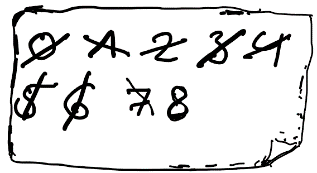 0 1 2 3 4
5 6 7 8